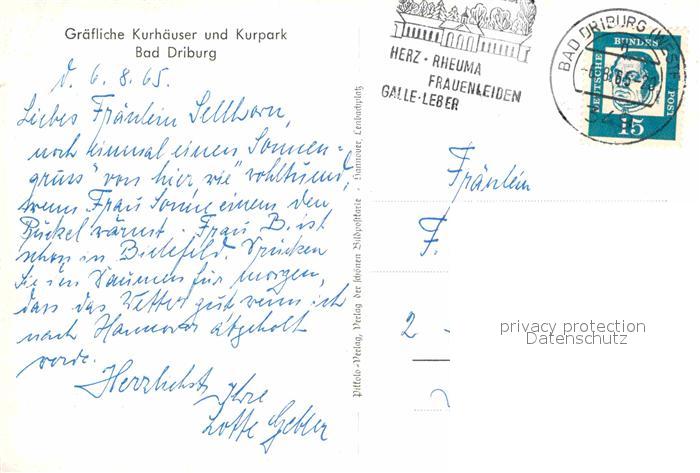 Gräfliche Kurhäuser und Kurpark
Bad Driburg
d. 6.8.65.
Liebes Fräulein Sellhorn,
noch einmal einen Sonnen=
gruss von hier wie wohltuend,
wenn Frau Sonne einem den
Rückel wärmst. Frau B. ist
schon in Bielefeld. Drücken
Sie den Daumen für morgen,
dass das Wetter gut wenn ich
nach Hannover abgeholt
werde.
Herzlichst Ihre
Lotte
Pikkolo-Verlag, Verlag der schönen Bildpostkarte · Hannover, Lenbachplatz
HERZ · RHEUMA
FRAUENLEIDEN
GALLE · LEBER
BAD DRIBURG (WESTF)
DEUTSCHE
BUNDES
POST
15
Fräulein
F.
2 -
privacy protection
Datenschutz